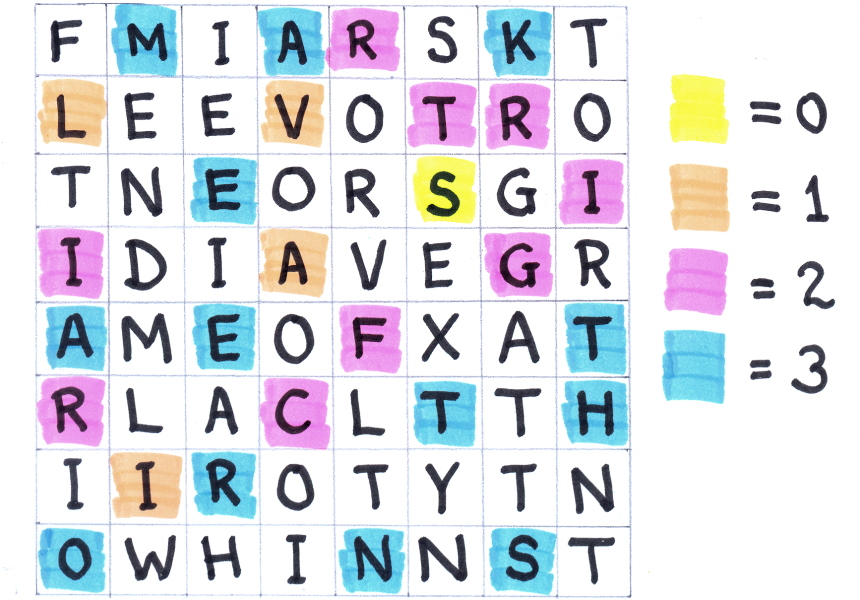 F M I A R S K T
L E E V O T R O = 0
T N E O R S G I = 1
I D I A V E G R = 2
A M E O F X A T = 3
R L A C L T T H
I I R O T Y T N
O W H I N N S T